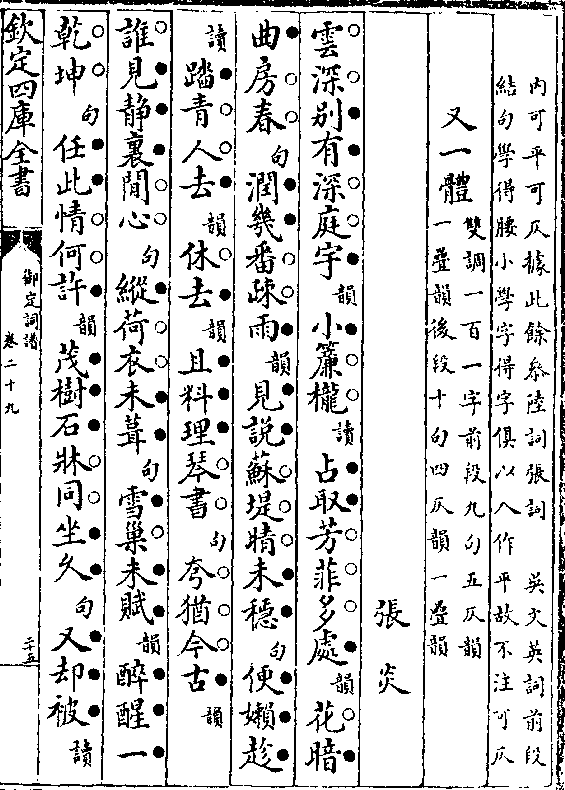 内可平可仄據此餘參陸詞張詞　吳文英詞前段
結句學得腰小學字得字俱以入作平故不注可仄
又一體雙調一百一字前段九句五仄韻
一疊韻後段十句四仄韻一疊韻
張炎
雲深别有深庭宇韻小簾櫳讀占取芳菲多處韻花暗
曲房春句潤幾番疎雨韻見説蘇堤晴未穩句便嬾趁
讀踏青人去韻休去韻且料理琴書句夸猶今古韻
誰見静裏閒心句縱荷衣未葺句雪巢未賦韻醉醒一
乾坤句任此情何許韻茂樹石牀同坐久句又却被讀
欽定四庫全書
御定詞譜
卷二十九
二十五